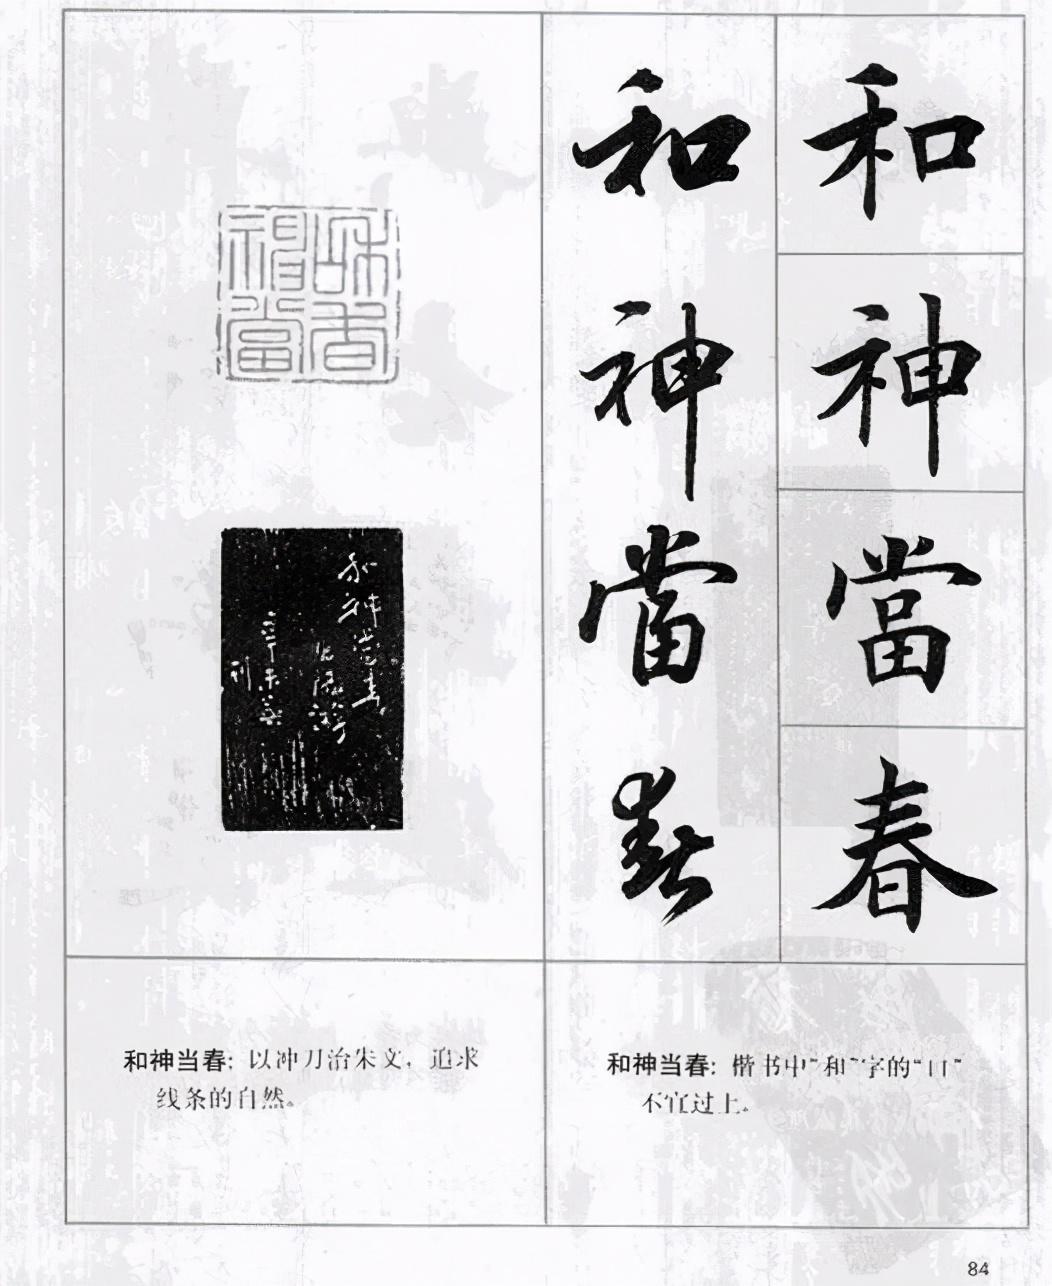 和
神
當
春
和
神
當
春
和春神當
和神當春
辛未
刊
和神当春：以冲刀治朱文，追求
线条的自然。
和神当春：楷书中“和”字的“口”
不宜过上。
84